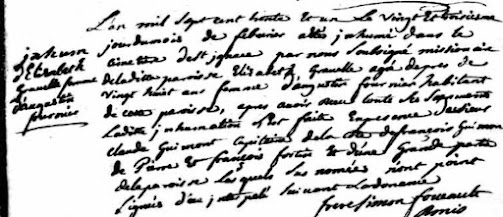 inhumon
d'Elizabeth
Gravelle femme
d'augustin
fournier
L'an mil sept cent trente et un Le vingt Et troisiesme
jour du mois de febvrier a esté inhumé dans le
cimetiere d'est ignace par nous soubsigné missionaire
de laditte paroisse Elizabeth Gravelle agé de pres de
vingt huit ans famme d'augustin fournier habitant
de cette paroisse, apres avoir receu touts les sacrements
Laditte inhumation s'est fait En presence
claude Guimont capitaine de la de françois Guimon
de Pierre Et françois fortin Et d'une Grande partie
de la paroisse Lesquels sus nomées n'ont point
signés de ce jnterpelé suivant Lordonance
frere Simon foucault